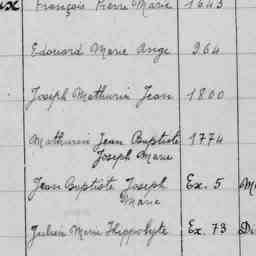 ux François Pierre Marie 1643
Edouard Marie Ange 964
Joseph Mathurin Jean 1800
Mathurin Jean Baptiste 1774
Joseph Marie
Jean Baptiste Joseph Ex. 5
Marie
Julien Marie Hippolyte Ex. 73 Di